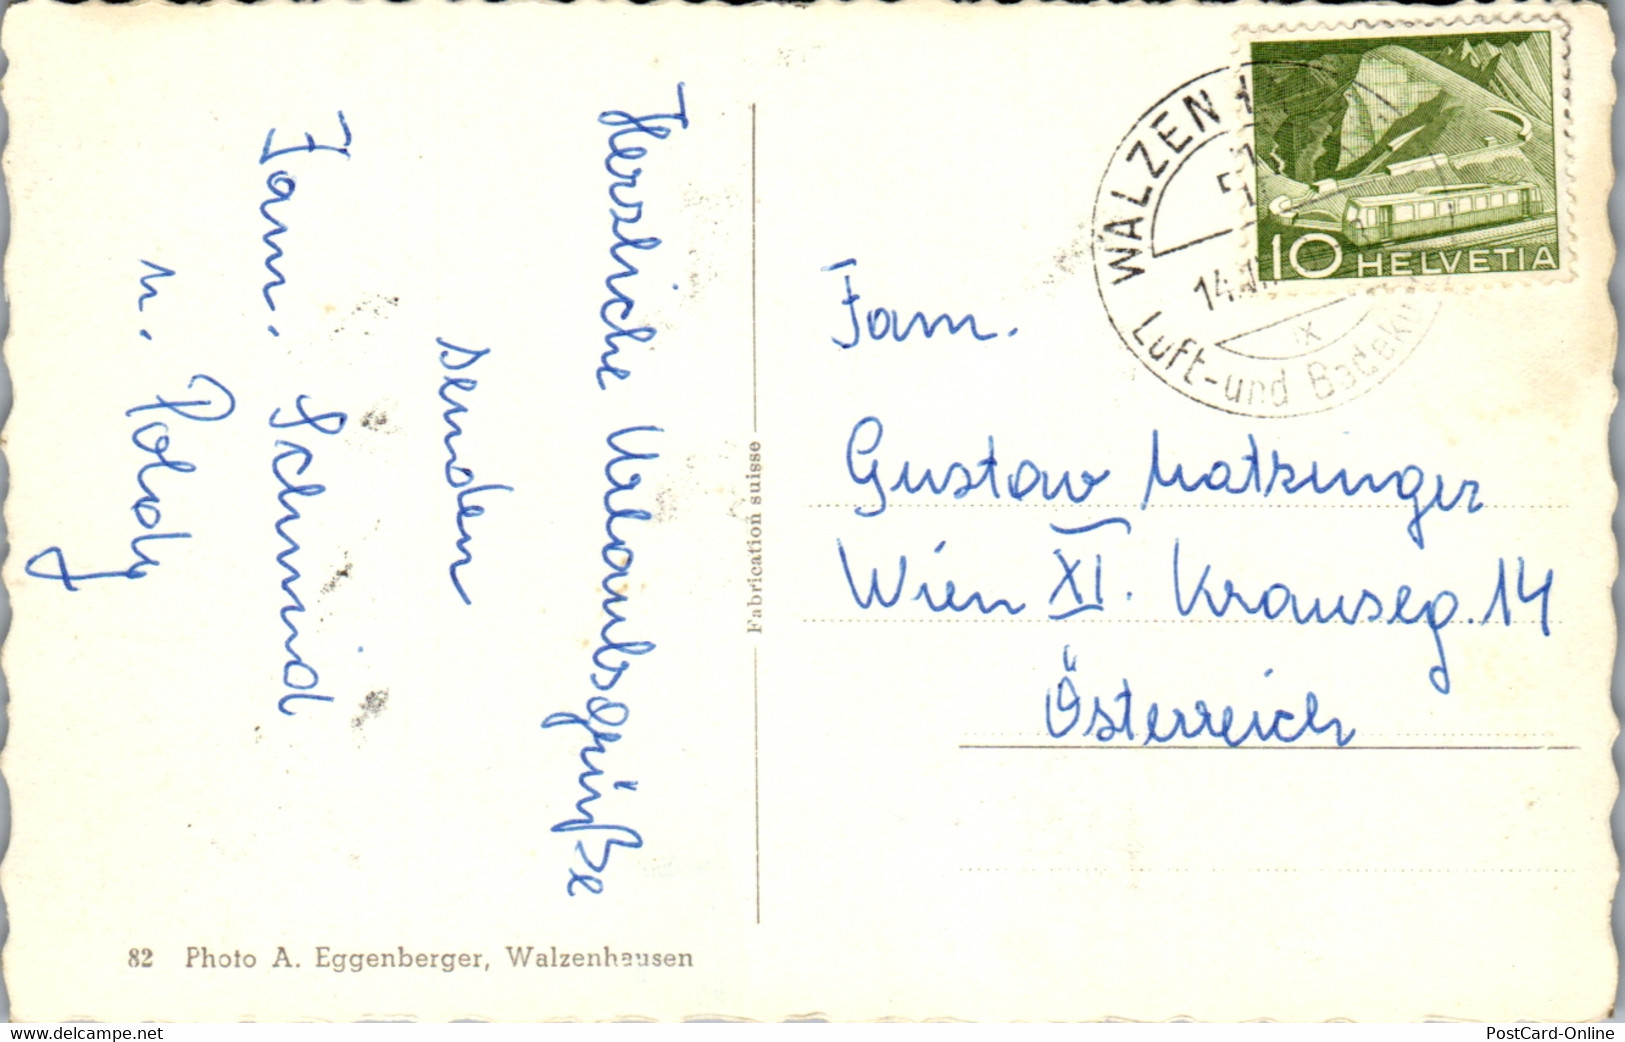 Herzliche Urlaubsgrüße
senden
Fam. Schmid
u. Poldy
Fabrication suisse
82 Photo A. Eggenberger, Walzenhausen
WALZEN
14.
IX
Luft- und Badeku
10 HELVETIA
Fam.
Gustav Matzinger
Wien XI. Krauseg. 14
Österreich
www.delcampe.net
PostCard-Online